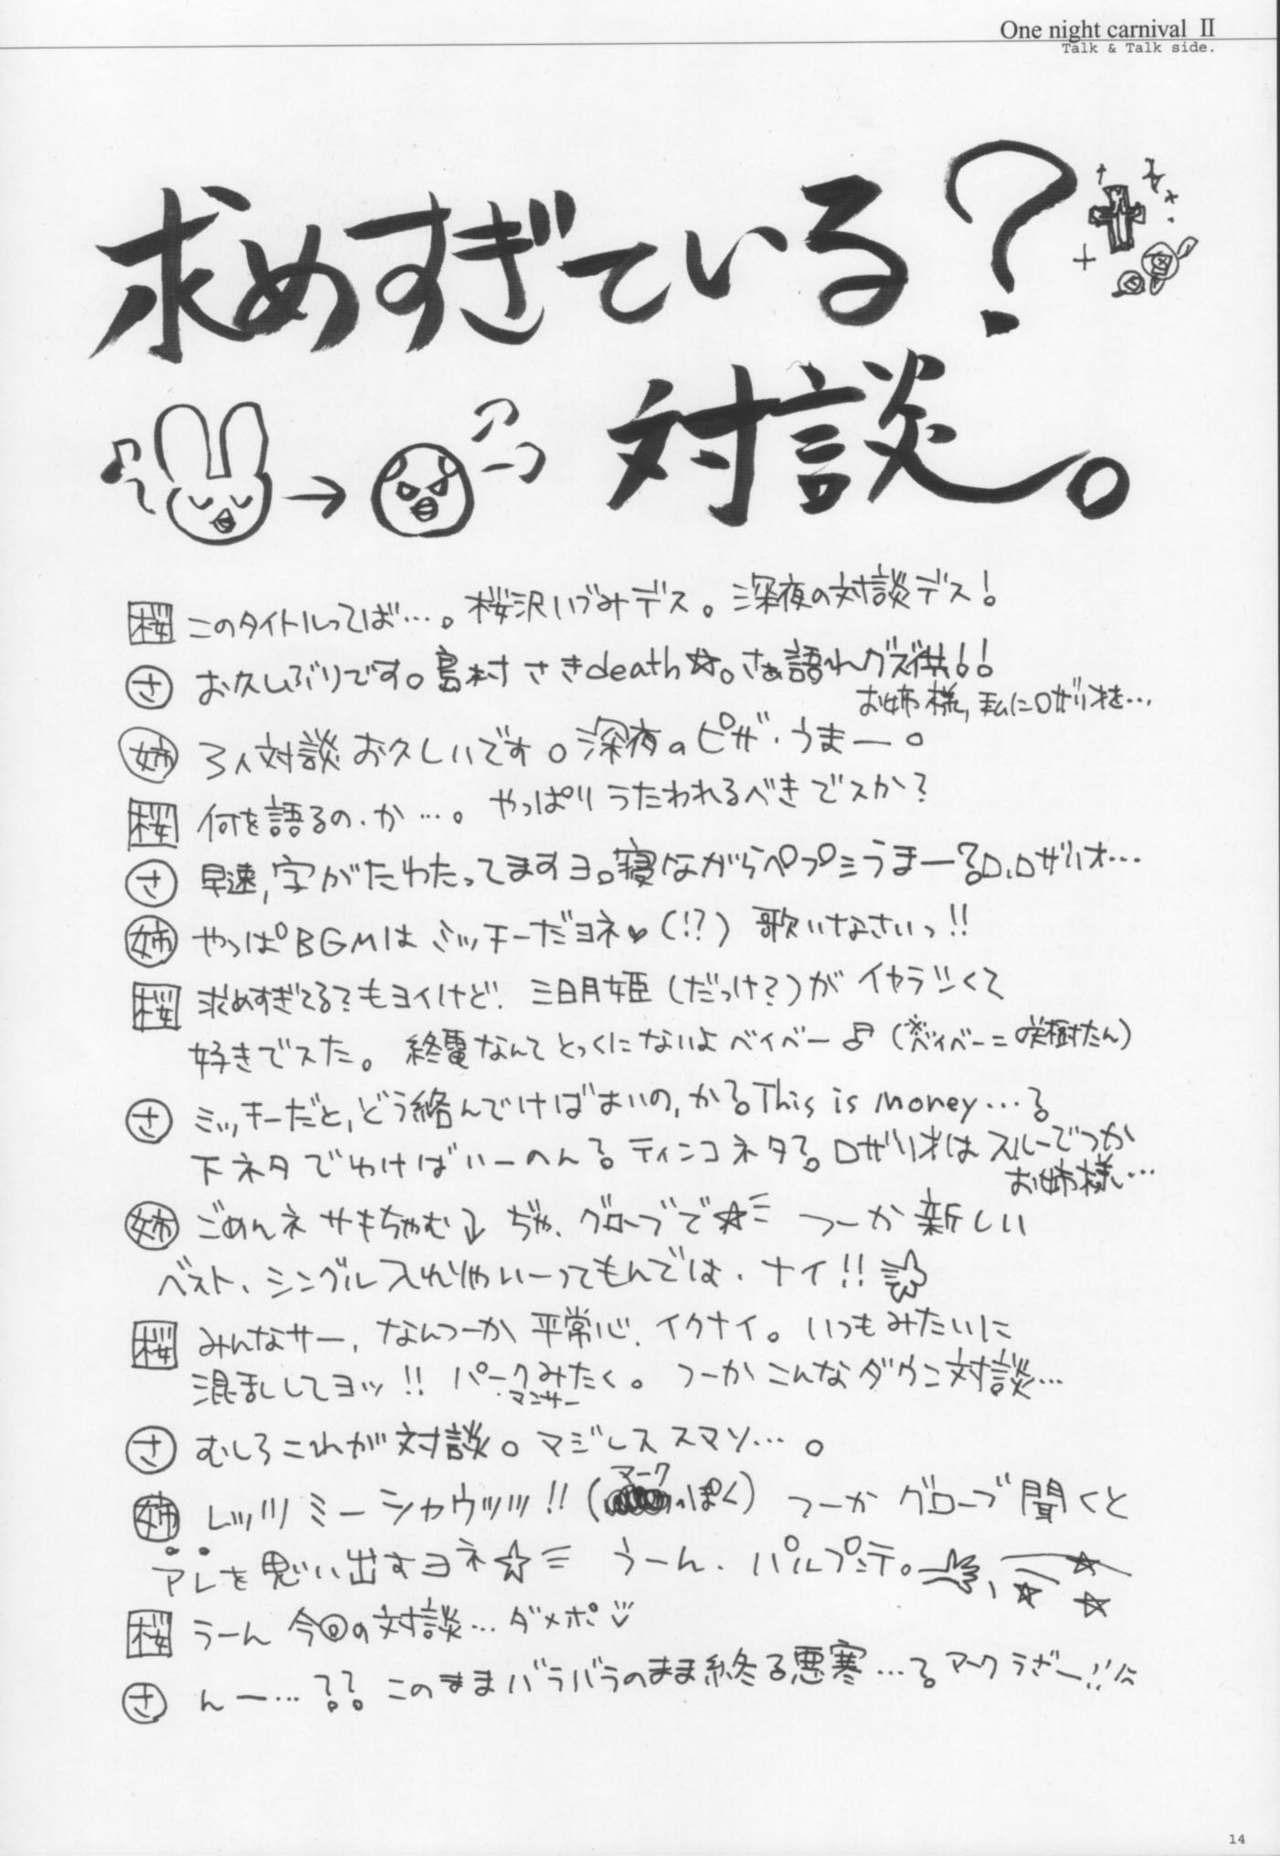 One night carnival Ⅱ
Talk & Talk side.
求めすぎている?
対談。
桜 このタイトルってば…。桜沢いづみデス。深夜の対談デス!
さ お久しぶりです。島村さきdeath☆。さぁ語れグズ供!!
お姉様,私にロザリオを…
姉 3人対談お久しいです。深夜のピザ・うまー。
桜 何を語るの・か…。やっぱりうたわれるべきでスか?
さ 早速,字がたわたってますヨ。寝ながらペプシうまー?ロ,ロザリオ…
姉 やっぱBGMはミッキーだヨネ♥(!?) 歌いなさいっ!!
桜 求めすぎてる?もヨイけど、三日月姫(だっけ?)がイヤラシくて
好きでスた。終電なんてとっくにないよベイベー♪(※ベイベー=咲樹たん)
さ ミッキーだと,どう絡んでけばよいの,か?This is money…?
下ネタでいければいーのん?ティンコネタ?ロザリオはスルーでつか
お姉様…
姉 ごめんネサキちゃむ↓ ぢゃ、グローブで☆ つーか新しい
ベスト、シングル入れりゃいーってもんでは、ナイ!!
桜 みんなサー、なんつーか平常心、イクナイ。いつもみたいに
混乱してヨッ!! パークみたく。つーかこんなダウン対談…
マンサー
さ むしろこれが対談。マジレススマソ…。
姉 レッツミーシャウッッ!!(マークっぽく) つーかグローブ聞くと
アレを思い出すヨネ☆ うーん、パルプンテ。
桜 うーん今回の対談…ダメポ
さ んー…??このままバラバラのまま終る悪寒…?マークうざー!!
アーつ
14